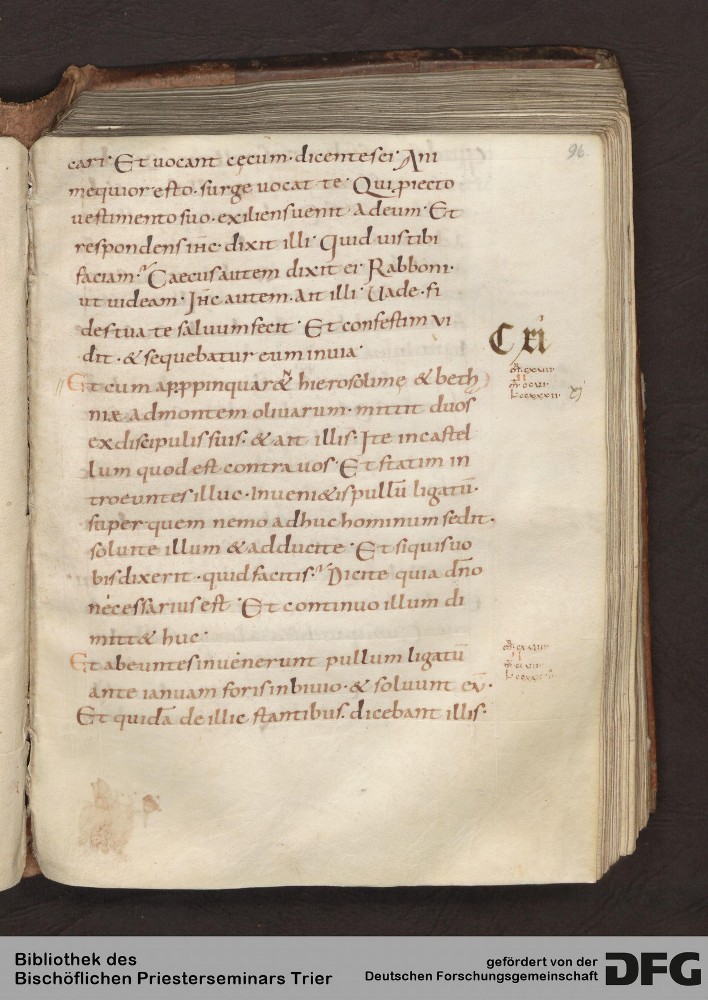 96.
cari· Et uocant cęcum· dicentes ei· Ani
mequior esto· surge uocat te· Qui piecto
uestimento suo· exiliens uenit ad eum· Et
respondens ihc· dixit illi· Quid uis tibi
faciam· Caecus autem dixit ei· Rabboni·
ut uideam· Ihc autem· Ait illi· Uade· fi
des tua te saluum fecit· Et confestim vi
dit· & sequebatur eum in uia·
Et cum appppinquar& hierosolime & beth
niæ ad montem oliuarum· mittit duos
ex discipulis suis· & ait illis· Ite in castel
lum quod est contra uos· Et statim in
troeuntes illuc· Inueni&is pullū ligatū·
super quem nemo adhuc hominum sedit·
soluite illum & adducite· Et si quis uo
bis dixerit· quid facitis· Dicite quia dn̄o
necessarius est· Et continuo illum di
mitt& huc·
Et abeuntes inuenerunt pullum ligatū
ante ianuam foris in biuio· & soluunt eū·
Et quidā de illic stantibus· dicebant illis·
C xi
xi
Bibliothek des
Bischöflichen Priesterseminars Trier
gefördert von der
Deutschen Forschungsgemeinschaft
DFG